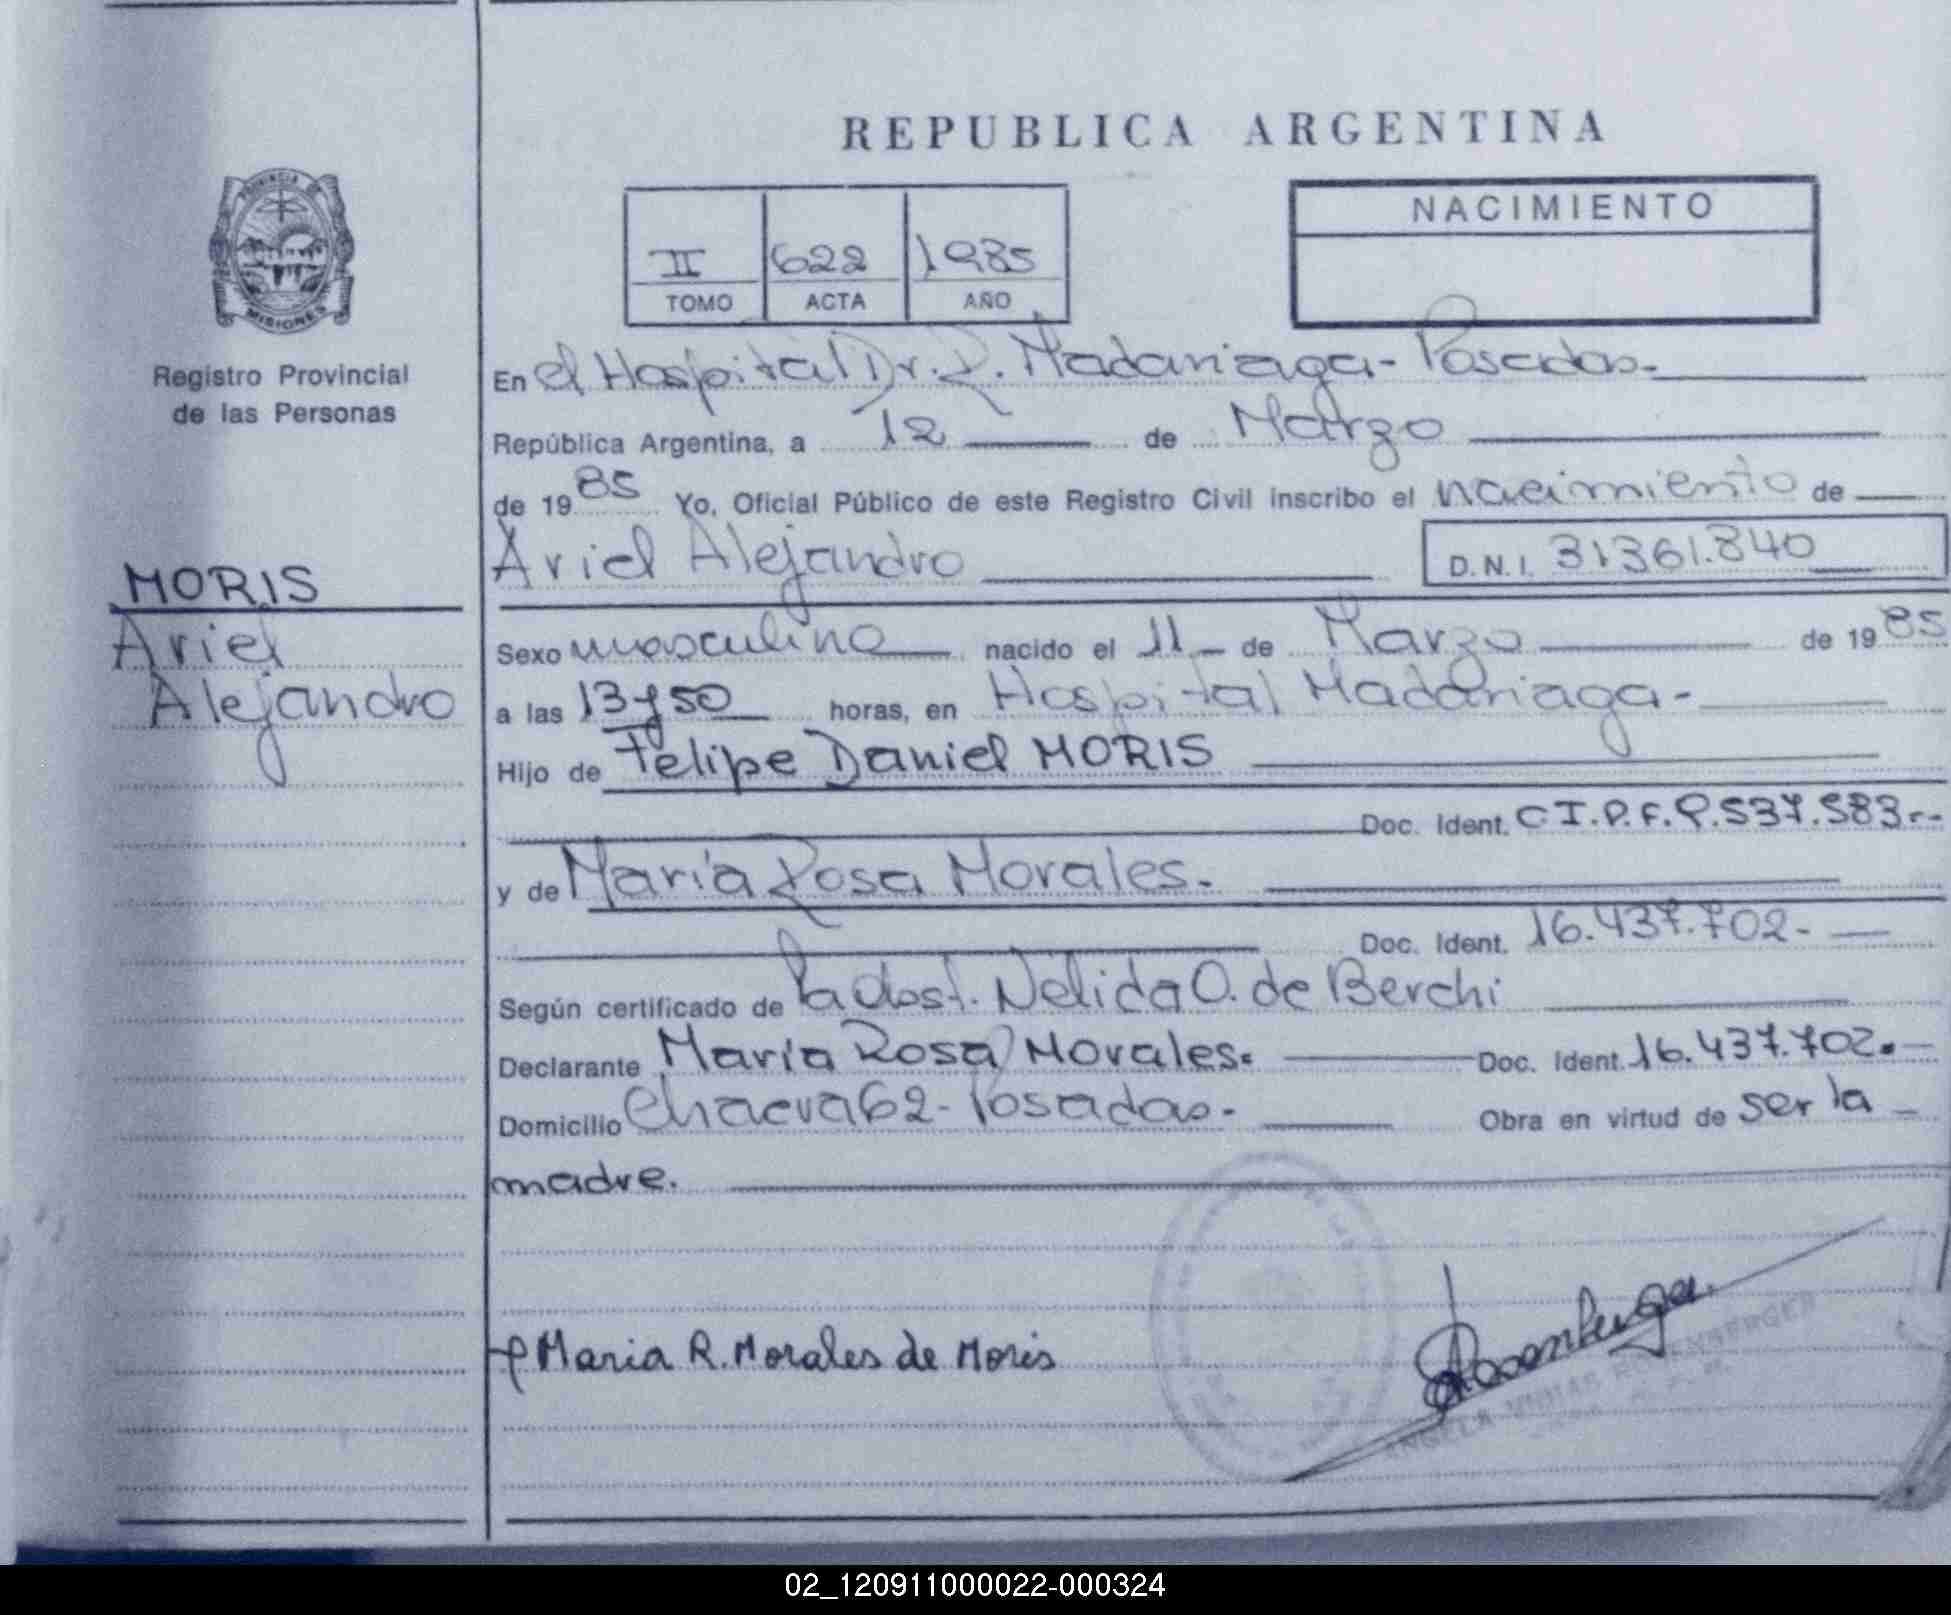 REPUBLICA ARGENTINA
PROVINCIA DE
MISIONES
Registro Provincial
de las Personas
II 622 1985
TOMO ACTA AÑO
NACIMIENTO
En el Hospital Dr. R. Madariaga - Posadas.
República Argentina, a 12 de Marzo
de 1985 Yo, Oficial Público de este Registro Civil inscribo el nacimiento de
Ariel Alejandro D.N.I. 31361.840
MORIS
Ariel
Alejandro
Sexo masculino nacido el 11 de Marzo de 1985
a las 13 y 50 horas, en Hospital Madariaga -
Hijo de Felipe Daniel MORIS
Doc. Ident. C.I.P.F. 9.537.583.-
y de María Rosa Morales.
Doc. Ident. 16.437.702.-
Según certificado de la Obst. Nelida O. de Berchi
Declarante María Rosa Morales. Doc. Ident. 16.437.702.-
Domicilio 62 - Posadas. Obra en virtud de ser la
madre.
Maria R. Morales de Moris
Rosenberger
ROSENBERGER
02_120911000022-000324